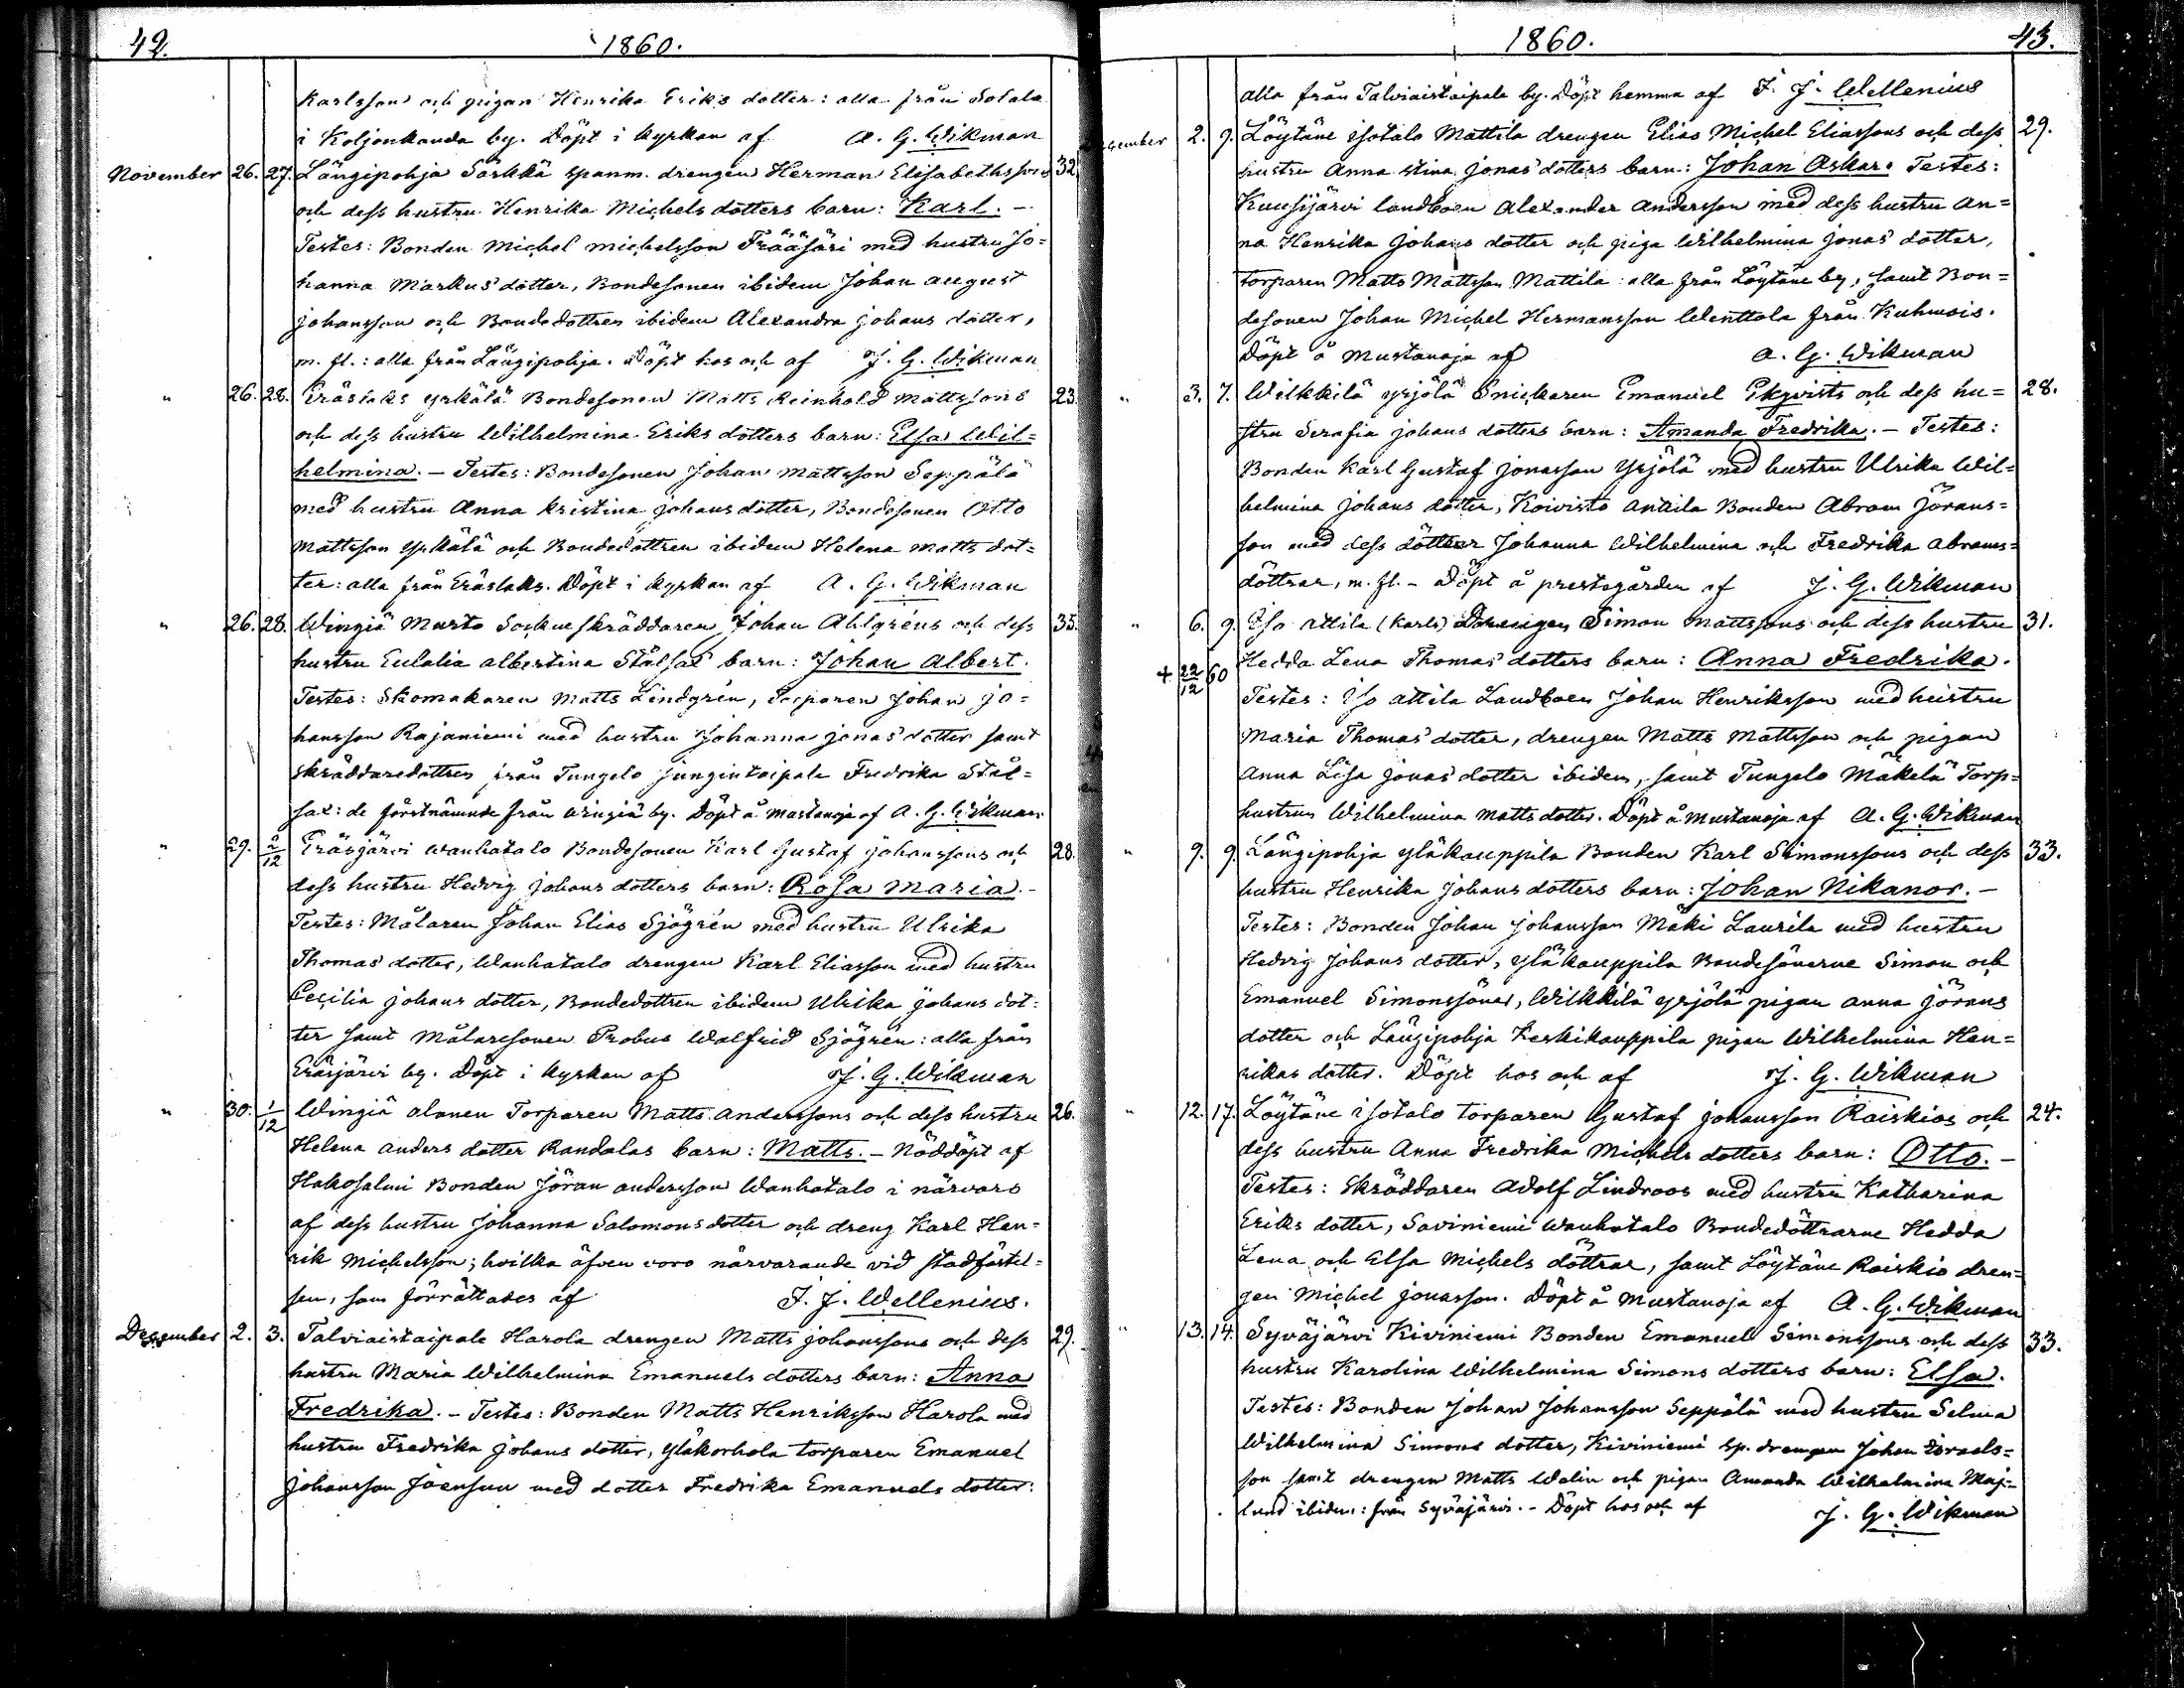 42.
1860.
Karlsson och pigan Henrika Eriks dotter: alla från Sotala
i Koljonkanda by. Döpt i kyrkan af A. G. Wikman
November 26. 27. Längipohja Särkkä spanm. drengen Herman Elisabethssons 32.
och dess hustru Henrika Michels dotters barn: Karl. -
Testes: Bonden Michel Michelsson Frääsäri med hustru Jo=
hanna Markus dotter, Bondesonen ibidem Johan August
Johansson och Bondedottren ibidem Alexandra Johans dotter,
m. fl.: alla från Längipohja. Döpt hos och af J. G. Wikman
" 26. 28. Eräslaks Yrkälä Bondesonen Matts Reinhold Mattssons 23.
och dess hustru Wilhelmina Eriks dotters barn: Elsa Wil=
helmina. - Testes: Bondesonen Johan Mattsson Seppälä
med hustru Anna Kristina Johans dotter, Bondesonen Otto
Mattsson Yrkälä och Bondedottren ibidem Helena Matts dot=
ter: alla från Eräslaks. Döpt i kyrkan af A. G. Wikman
" 26. 28. Wingiä Musto Sockneskräddaren Johan Ahlgréns och dess 35.
hustru Eulalia Albertina Stålsax barn: Johan Albert.
Testes: Skomakaren Matts Lindgrén, Torparen Johan Jo=
hansson Rajaniemi med hustru Johanna Jonas dotter samt
skräddaredottren från Tungelo Jungintaipale Fredrika Stål=
sax: de förstnämnde från Wingiä by. Döpt å Mustanoja af A. G. Wikman
" 29. 2/12 Eräsjärvi Wanhatalo Bondesonen Karl Gustaf Johanssons och 28.
dess hustru Hedvig Johans dotters barn: Rosa Maria. -
Testes: Målaren Johan Elias Sjögrén med hustru Ulrika
Thomas dotter, Wanhatalo drengen Karl Eliasson med hustru
Cecilia Johans dotter, Bondedottren ibidem Ulrika Johans dot=
ter samt Målaresonen Probus Walfrid Sjögrén: alla från
Eräsjärvi by. Döpt i kyrkan af J. G. Wikman
" 30. 1/12 Wingiä Alanen Torparen Matts Anderssons och dess hustru 26.
Helena Anders dotter Randalas barn: Matts. - Nöddöpt af
Hakosalmi Bonden Jöran Andersson Wanhatalo i närvaro
af dess hustru Johanna Salomons dotter och dreng Karl Hen=
rik Michelsson; hvilka äfven voro närvarande vid stadfästel=
sen, som förrättades af F. J. Wellenius.
December 2. 3. Talviaistaipale Harola drengen Matts Johanssons och dess 29.
hustru Maria Wilhelmina Emanuels dotters barn: Anna
Fredrika. - Testes: Bonden Matts Henriksson Harola med
hustru Fredrika Johans dotter, Yläkorhola torparen Emanuel
Johansson Joensuu med dotter Fredrika Emanuels dotter:
1860.
43.
alla från Talviaistaipale by. Döpt hemma af F. J. Wellenius
December 2. 9. Löytäne Isotalo Mattila drengen Elias Michel Eliassons och dess 29.
hustru Anna Stina Jonas dotters barn: Johan Oskar. Testes:
Kuusijärvi landboen Alexander Andersson med dess hustru An=
na Henrika Johans dotter och piga Wilhelmina Jonas dotter,
torparen Matts Mattsson Mattila: alla från Löytäne by, samt Bon=
desonen Johan Michel Hermansson Wenttola från Kuhmois.
Döpt å Mustanoja af A. G. Wikman
" 3. 7. Wilkkilä Yrjölä Snickaren Emanuel Ekqvists och dess hu= 28.
stru Serafia Johans dotters barn: Amanda Fredrika. - Testes:
Bonden Karl Gustaf Jonasson Yrjölä med hustru Ulrika Wil=
helmina Johans dotter, Koivisto Anttila Bonden Abram Jörans=
son med dess döttrar Johanna Wilhelmina och Fredrika Abrams=
döttrar, m. fl. - Döpt å prestegården af J. G. Wikman
" 6. 9. Iso Attila (Karls) Drengen Simon Mattssons och dess hustru 31.
+ 22/12 60 Hedda Lena Thomas dotters barn: Anna Fredrika.
Testes: Iso Attila Landboen Johan Henriksson med hustru
Maria Thomas dotter, drengen Matts Mattsson och pigan
Anna Lisa Jonas dotter ibidem, samt Tungelo Mäkelä Torp=
hustrun Wilhelmina Matts dotter. Döpt å Mustanoja af A. G. Wikman
" 9. 9. Längipohja Yläkauppila Bonden Karl Simonssons och dess 33.
hustru Henrika Johans dotters barn: Johan Nikanor. -
Testes: Bonden Johan Johansson Mäki Laurila med hustru
Hedvig Johans dotter, Yläkauppila Bondesönerne Simon och
Emanuel Simonssöner, Wilkkilä Yrjölä pigan Anna Jörans
dotter och Längipohja Keskikauppila pigan Wilhelmina Hen=
rikas dotter. Döpt hos och af J. G. Wikman
" 12. 17. Löytäne Isotalo torparen Gustaf Johansson Raiskios och 24.
dess hustru Anna Fredrika Michels dotters barn: Otto. -
Testes: Skräddaren Adolf Lindroos med hustru Katharina
Eriks dotter, Saviniemi Wanhatalo Bondedöttrarne Hedda
Lena och Elsa Michels döttrar, samt Löytäne Raiskio dren=
gen Michel Jonasson. Döpt å Mustanoja af A. G. Wikman
" 13. 14. Syväjärvi Kiviniemi Bonden Emanuel Simonssons och dess 33.
hustru Karolina Wilhelmina Simons dotters barn: Elsa.
Testes: Bonden Johan Johansson Seppälä med hustru Selma
Wilhelmina Simons dotter, Kiviniemi sp. drengen Johan Israels=
son samt drengen Matts Walin och pigan Amanda Wilhelmina Maj=
lund ibidem: från Syväjärvi. - Döpt hos och af J. G. Wikman